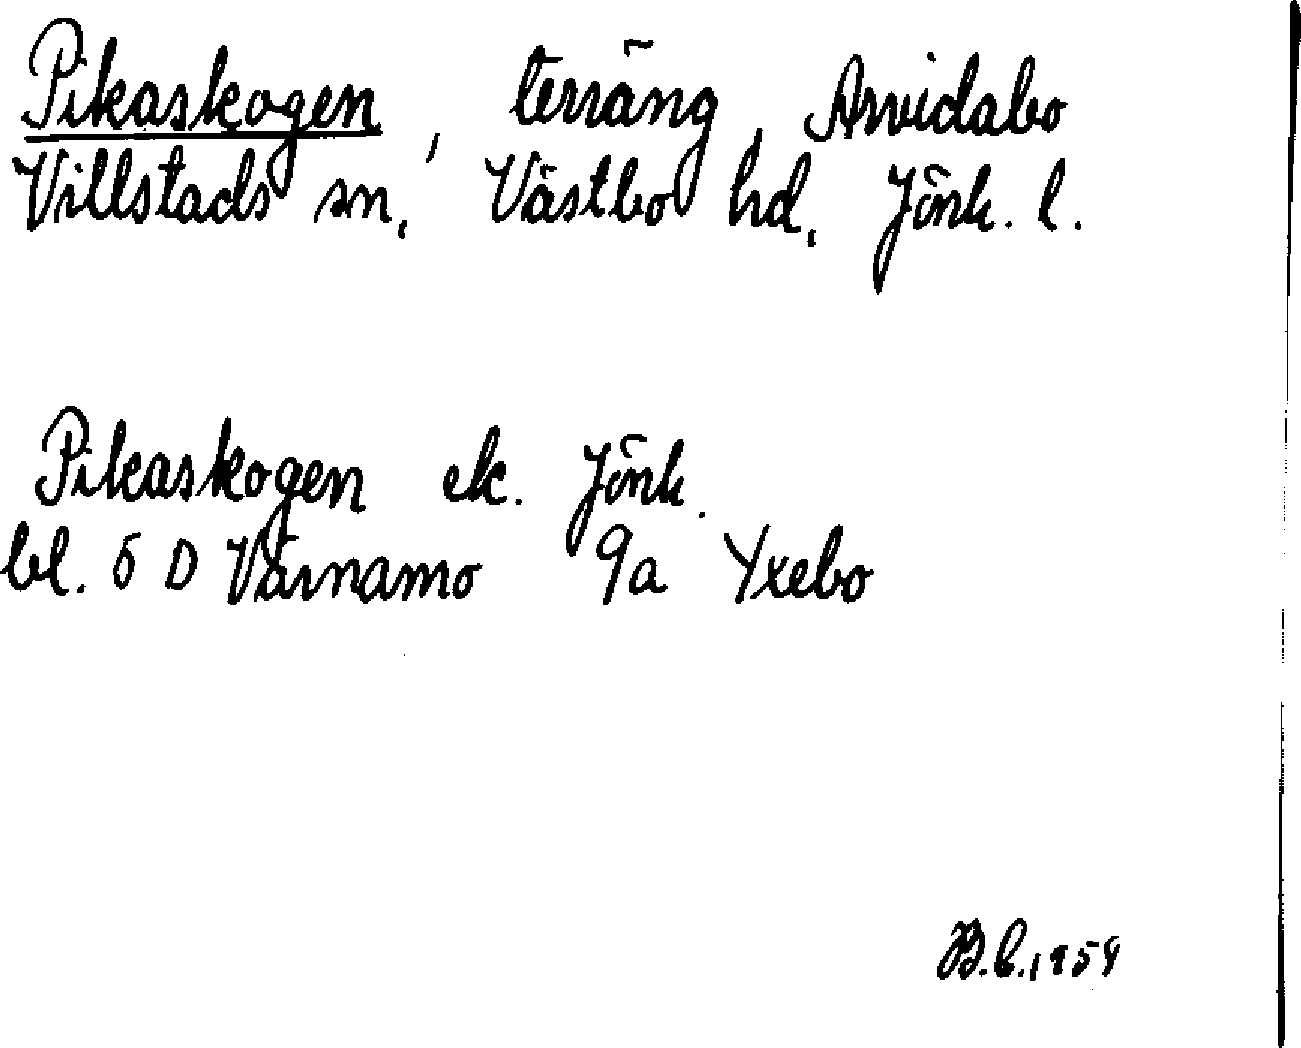 Pikaskogen, terräng, Arvidabo
Villstads sn, Västbo hd, Jönk. l.
Pikaskogen ek. Jönk.
bl. 5 D Värnamo 9a Yxebo
B.E. 1959